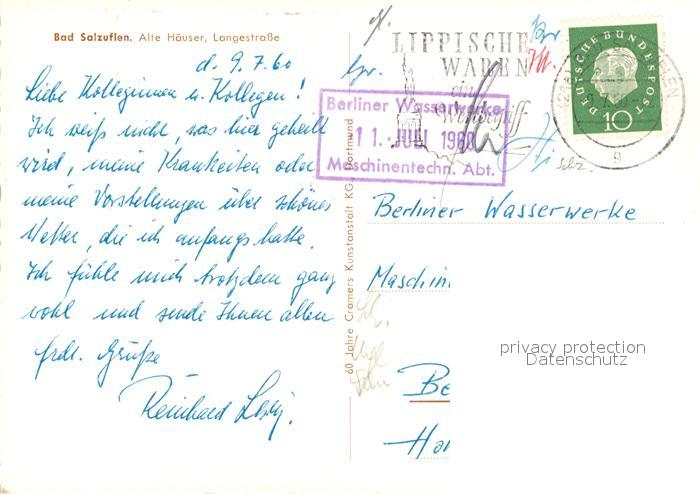 Bad Salzuflen. Alte Häuser, Langestraße
d. 9.7.60
Liebe Kolleginnen u. Kollegen!
Ich weiß nicht, was hier geheilt
wird, meine Krankeiten oder
meine Vorstellungen über schönes
Wetter, die ich anfangs hatte.
Ich fühle mich trotzdem ganz
wohl und sende Ihnen allen
frdl. Grüße
Reinhard
60 Jahre Cramers Kunstanstalt KG., Dortmund
LIPPISCHE
WAREN
ein
Wertbegriff
DEUTSCHE BUNDESPOST
10
Berliner Wasserwerke
11. JULI 1960
Maschinentechn. Abt.
Berliner Wasserwerke
Maschin
privacy protection
Datenschutz
Be